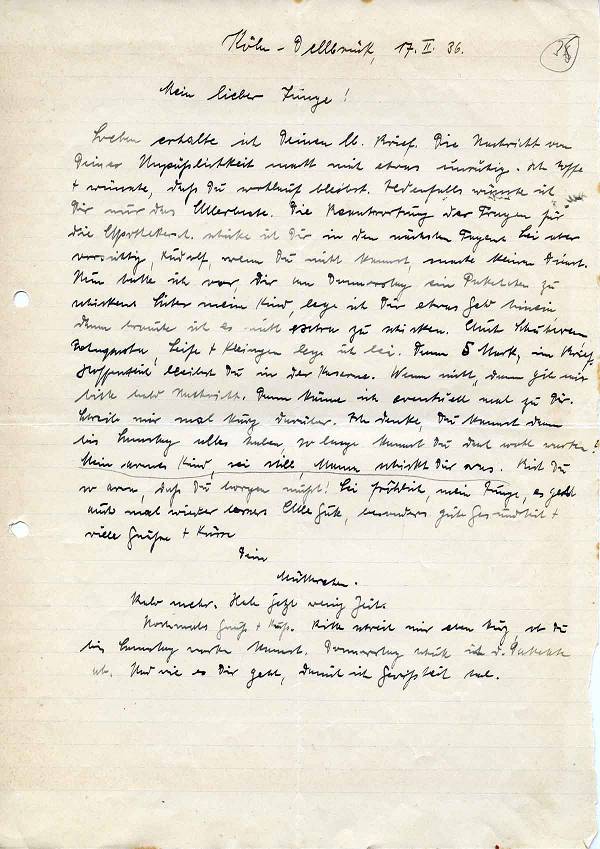 Köln-Dellbrück, 17. II. 36.
38
Mein lieber Junge!
Soeben erhalte ich Deinen lb. Brief. Die Nachricht von
Deiner Unpäßlichkeit macht mich etwas unruhig. Ich hoffe
+ wünsche, daß Du wohlauf bleibst. Jedenfalls wünsche ich
Dir nur das Allerbeste. Die Beantwortung der Fragen für
die schicke ich Dir in den nächsten Tagen. Sei aber
vorsichtig, Rudolf, wenn Du nicht kannst, mache keinen Dienst.
Nun hatte ich vor, Dir am Donnerstag ein Paketchen zu
schicken. Sicher mein Kind, lege ich Dir etwas Geld hinein
dann brauche ich es nicht extra zu schicken. Auch Schuhcrem
Seife + Klingen lege ich bei. Dann 5 Mark, im Brief.
Hoffentlich bleibst Du in der Kaserne. Wenn nicht, dann gib mir
bitte bald Nachricht. Dann käme ich eventuell mal zu Dir.
Schreibe mir mal kurz darüber. Ich denke, Du kannst dann
bis Samstag alles haben, so lange kannst Du doch wohl warten?
Mein armes Kind, sei still, Mama schickt Dir was. Bist Du
so arm, daß Du borgen mußt! Sei fröhlich, mein Junge, es geht
auch mal wieder besser. Alles Gute, besonders gute Gesundheit +
viele Grüße + Küsse
Dein
Mütterchen.
Bald mehr. Habe jetzt wenig Zeit.
Nochmals Gruß + Kuß. Bitte schreib mir eben kurz, ob Du
bis Samstag warten kannst. Donnerstag schicke ich d. Paketchen
ab. Und wie es Dir geht, damit ich Gewißheit habe.